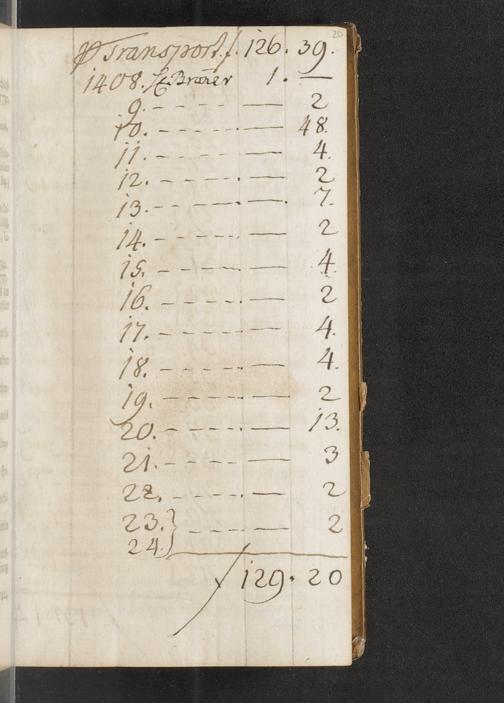 20
P Transport f. 126. 39.
1408. Le Brauer 1. —
9. - - - - — 2
10. - - - - — 48.
11. - - - - — 4.
12. - - - - — 2
13. - - - - — 7.
14. - - - - — 2
15. - - - - — 4.
16. - - - - — 2
17. - - - - — 4.
18. - - - - — 4.
19. - - - - — 2
20. - - - - — 13.
21. - - - - — 3
22. - - - - — 2
23. } - - - - — 2
24. }
f 129. 20